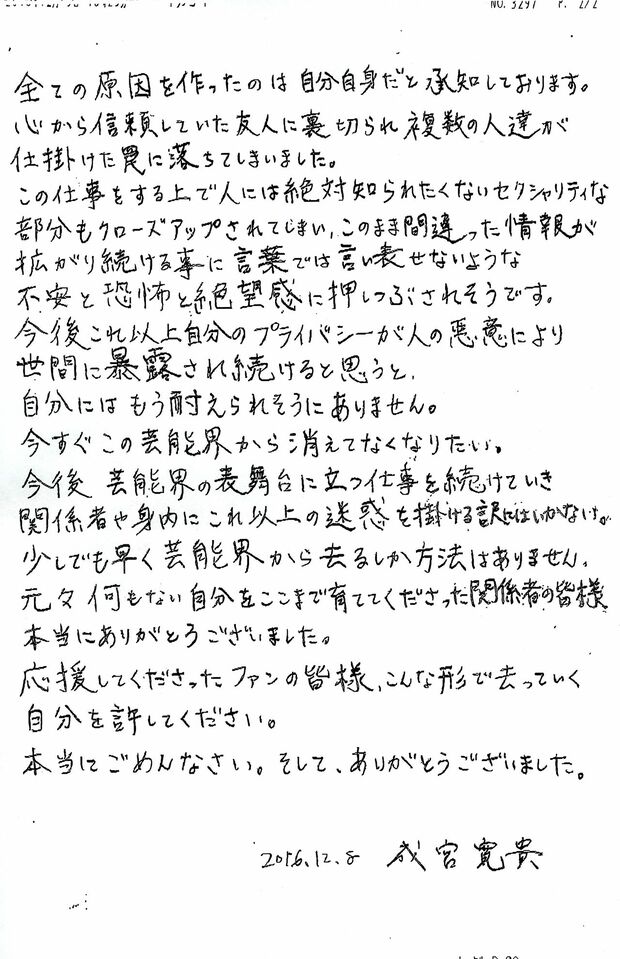 NO. 3297 P. 2/2
全ての原因を作ったのは自分自身だと承知しております。
心から信頼していた友人に裏切られ複数の人達が
仕掛けた罠に落ちてしまいました。
この仕事をする上で人には絶対知られたくないセクシャリティな
部分もクローズアップされてしまい、このまま間違った情報が
拡がり続ける事に言葉では言い表せないような
不安と恐怖と絶望感に押しつぶされそうです。
今後これ以上自分のプライバシーが人の悪意により
世間に暴露され続けると思うと、
自分にはもう耐えられそうにありません。
今すぐこの芸能界から消えてなくなりたい。
今後芸能界の表舞台に立つ仕事を続けていき
関係者や身内にこれ以上の迷惑を掛ける訳にはいかないので
少しでも早く芸能界から去るしか方法はありません。
元々何もない自分をここまで育ててくださった関係者の皆様
本当にありがとうございました。
応援してくださったファンの皆様、こんな形で去っていく
自分を許してください。
本当にごめんなさい。そして、ありがとうございました。
2016.12.8 成宮寛貴